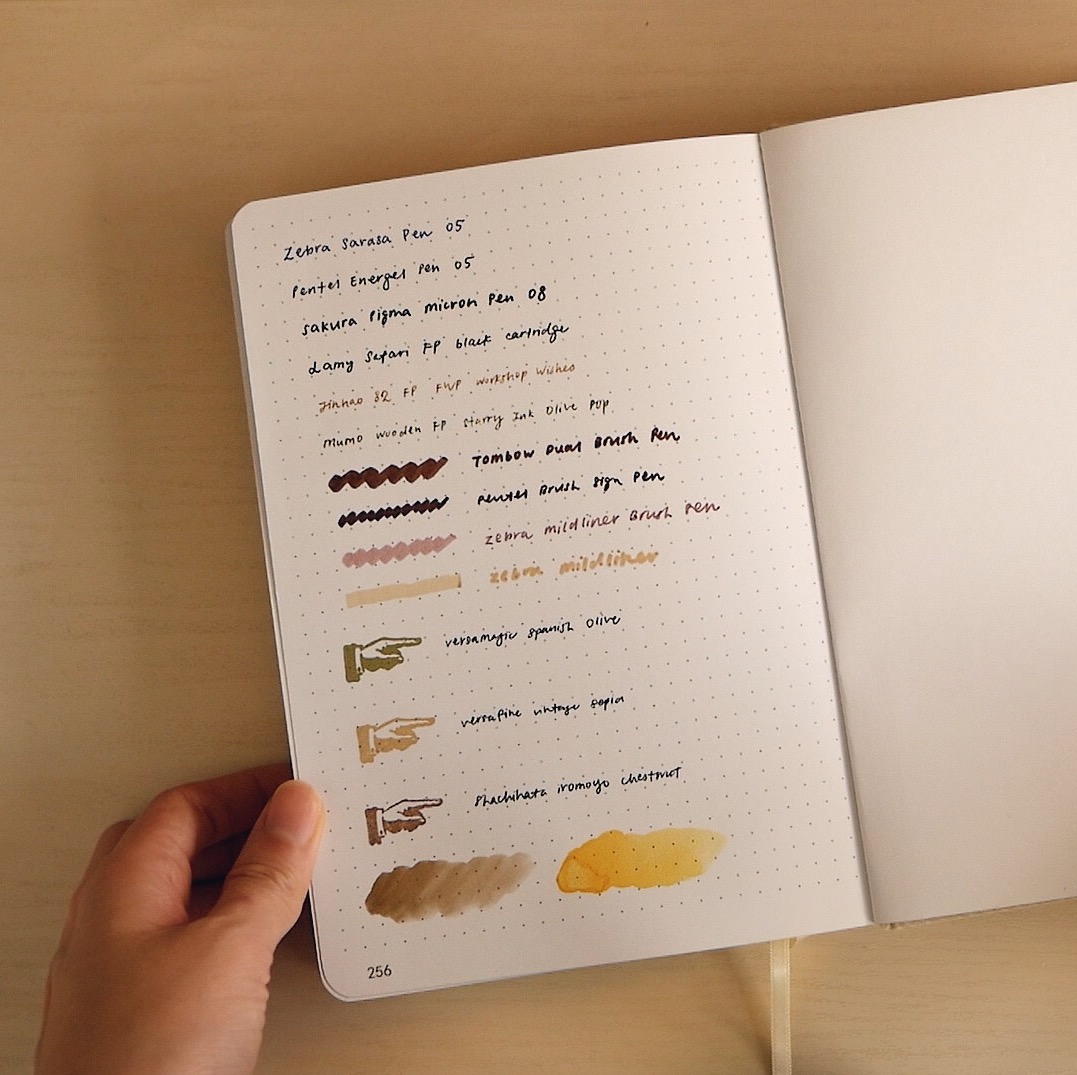 Zebra Sarasa Pen 05
Pentel Energel Pen 05
Sakura Pigma Micron Pen 08
Lamy Safari FP black cartridge
Jinhao 82 FP FWP Workshop Wishes
Mumo wooden FP Starry Ink Olive Pop
Tombow Dual Brush Pen
Pentel Brush Sign Pen
Zebra mildliner Brush Pen
Zebra mildliner
versamagic Spanish Olive
versafine vintage sepia
Shachihata iromoyo chestnut
256